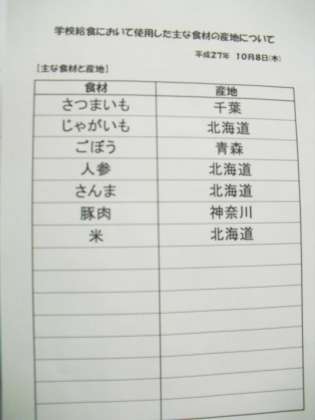 学校給食において使用した主な食材の産地について
平成27年 10月8日(木)
[主な食材と産地]
食材 産地
さつまいも 千葉
じゃがいも 北海道
ごぼう 青森
人参 北海道
さんま 北海道
豚肉 神奈川
米 北海道